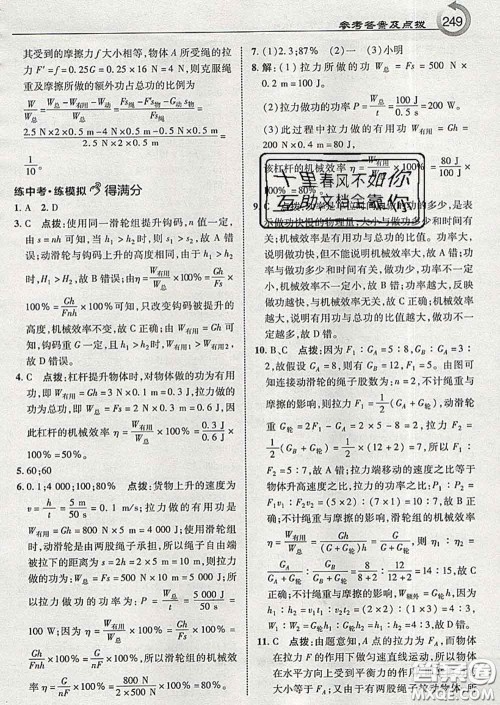 参考答案及点拨
249
其受到的摩擦力 f 大小相等，物体 A 所受绳的拉
力 F′=f=0.25G=0.25×16 N=4 N，则克服绳
重及摩擦所做的额外功占总功的比例为
W/W总=(W总-W有用-W动)/W总=(Fs绳-Fs物-G动s物)/Fs绳=
(2.5 N×2×0.5 m-4 N×0.5 m-1 N×0.5 m)/(2.5 N×2×0.5 m)=
1/10。
练中考·练模拟 得满分
1. A 2. D
3. C 点拨：使用同一滑轮组提升钩码，n 值一定，
由 s=nh 可知，当 h1>h2 时，s1>s2，故 A 错误；
动滑轮与钩码上升的高度相同，由于 h1>h2
时，H1>H2，故 B 错误；由η=W有用/W总×100%=Gh/Fs×
100%=Gh/Fnh×100%可知，只改变钩码被提升的
高度，机械效率不变，故 C 正确；由 W有用=Gh 可
知，钩码重 G 一定，且 h1>h2 时，W有用1>W有用2，
故 D 错误。
4. C 点拨：杠杆提升物体时，对物体做的功为有用
功，即 W有用=Gh=3 N×0.2 m=0.6 J；拉力做的
功为总功，即 W总=Fs=2 N×0.5 m=1 J；因
此杠杆的机械效率η=W有用/W总×100%=0.6 J/1 J×
100%=60%。
5. 60；60
6. 0.1；4 000；100；80% 点拨：货物上升的速度为
v=h/t=5 m/50 s=0.1 m/s；拉力做的有用功是
W有用=Gh=800 N×5 m=4 000 J；使用滑轮组
时，动滑轮是由两股绳子承担，所以绳子自由端
被拉下的距离为 s=2h=2×5 m=10 m，所以总
功为 W总=Fs=500 N×10 m=5 000 J，所以拉力
的功率为 P=W总/t=5 000 J/50 s=100 W；
100 W；因为η=W有用/W总×100%=Gh/Fs×100%=
Gh/Fnh×100%=G/nF×100%，所以滑轮组的机械效
率η=G/nF×100%=800 N/(2×500 N)×100%=80%。
7. (1)2.3；87% (2)1 (3)小明
8. 解：(1)拉力所做的功 W总=Fs=500 N×
0.2 m=100 J。
(2)拉力做功的功率 P=W总/t=100 J/0.5 s=200 W。
(3)此过程中拉力所做的有用功 W有用=Gh=
80 J
该杠杆的机械效率η=W有用/W总×100%=80 J/100 J×
十里春风不如你
互助文档全靠你
示做功快慢的物理量，大小与做功多少和时间有
关；机械效率是有用功与总功的比值。功率大，
说明做功快，但不能说明机械效率高，故 A 错；
功率与做功多少和时间有关，做功少，功率不一定
小，机械效率也不一定小，故 B 错；功率大，反映
做功越快，与机械效率无关，故 C 正确；机械效率
越大，说明有用功与总功的比值越大，做功不一
定越多，故 D 错。
10. B、C 点拨：因为 F1∶GA=5∶8，GB∶GA=3∶
2，故假设 GA=8 N，则 F1=5 N，GB=12 N。由图
可知连接动滑轮的绳子股数为：n=2，不计绳重
与摩擦的影响，则拉力 F=1/2(GA+G轮)，F1∶
F2=[1/2(GA+G轮)]∶[1/2(GB+G轮)]=
5∶7，故 A 错；拉力端移动的速度之比等于
物体升高高度之比，拉力的功率之比：P1∶P2=
F1v1∶F2v2=(F1v1)∶(F2v2)=(F1h1)∶
(F2h2)=10∶7；不计绳重与摩擦的影响，滑轮组
的机械效率η=W有用/W总=Gh/(Gh+G轮h)=G/(G+G轮)，机械效率
之比：η1∶η2=GA/(GA+G轮)∶GB/(GB+G轮)=8/(8+2)∶
12/(12+2)=14∶15，故 C 正确；不计
绳重与摩擦的影响，W额外=G轮h，因为
h1∶h2=v1t1∶v2t2=v1∶v2=2∶1，所以 W1∶
W2=G轮h1∶G轮h2=h1∶h2=2∶1，故 D 错。
11. C 点拨：由题意知，A 点的拉力为 FA，而物体
在拉力 F 的作用下做匀速直线运动，所以物体
在水平方向上受到平衡力的作用，
大小等于 FA；又由于有两股绳子